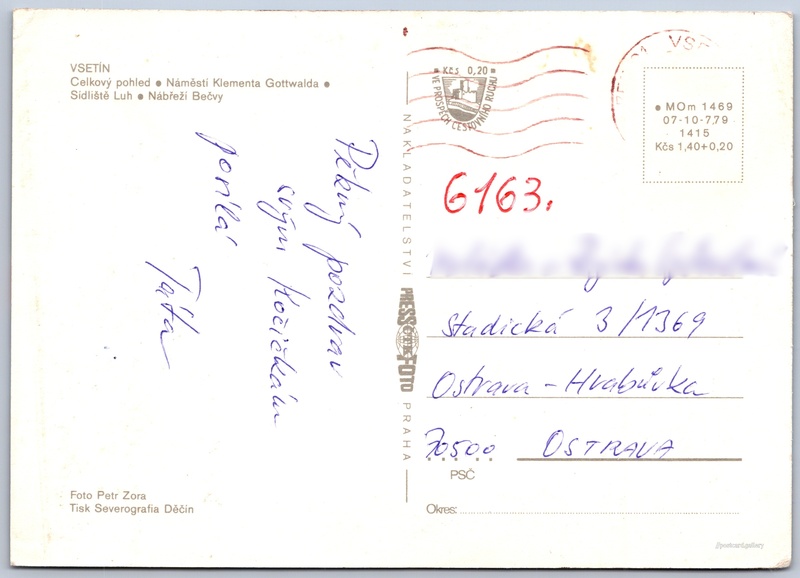 VSETÍN
Celkový pohled ● Náměstí Klementa Gottwalda ●
Sídliště Luh ● Nábřeží Bečvy
Pěkný pozdrav
svým Kočičkám
posílá
Taťa
Foto Petr Zora
Tisk Severografia Děčín
NAKLADATELSTVÍ
PRESSFOTO
PRAHA
Kčs 0,20
VE PROSPĚCH CESTOVNÍHO RUCHU
● MOm 1469
07-10-7,79
1415
Kčs 1,40+0,20
6163.
Stadická 3/1369
Ostrava - Hrabůvka
70500 OSTRAVA
PSČ
Okres:
//postcard.gallery